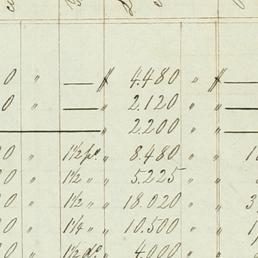 0 " — " 4.480 " " —
0 " — " 2.120 " " —
2.200 " "
0 " 1½ po. " 8.480 " " 1
0 " 1½ " " 5.225 " "
0 " 1½ " " 18.020 " " 3
0 " 1¼ " " 10.500 " " 1
0 " 1½ do. 4.000 " "